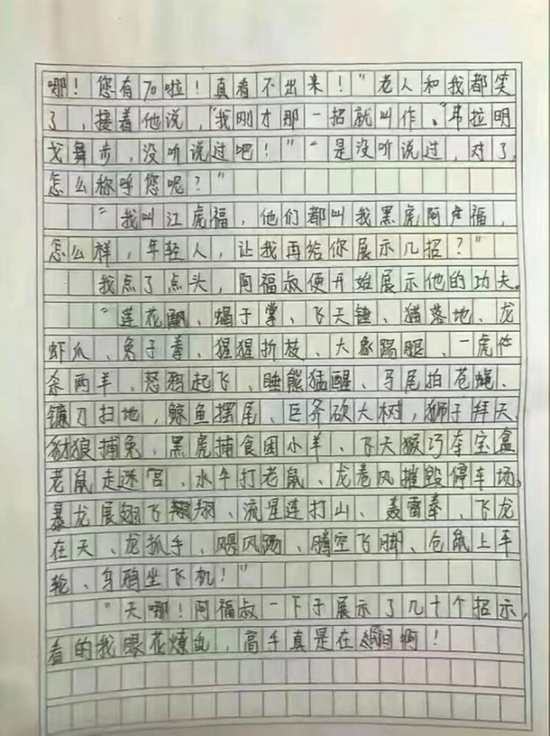 哪！您有70啦！真看不出来！”老人和我都笑
了，接着他说，“我刚才那一招就叫作、韦拉明
戈舞步，没听说过吧！”“是没听说过，对了，
怎么称呼您呢？”
“我叫江虎福，他们都叫我黑虎阿福，
怎么样，年轻人，让我再给你展示几招？”
我点了点头，阿福叔便开始展示他的功夫。
“莲花飘、蝎子掌、飞天锤、猫落地、龙
虾爪、兔子拳、猩猩折枝、大象踢腿、一虎
杀两羊、怒鸦起飞、睡熊猛醒、马尾拍苍蝇、
镰刀扫地，鲸鱼摆尾、巨斧砍大树，狮子拜天
豺狼捕兔、黑虎捕食困小羊、飞天猴巧夺宝盒
老鼠走迷宫、水牛打老鼠、龙卷风摧毁停车场、
暴龙展翅飞翔、流星连打山、轰雷拳、飞龙
在天、龙抓手、飓风踢、腾空飞脚、仓鼠上车
轮、乌鸦坐飞机！”
“天哪！阿福叔一下子展示了几十个招示，
看的我眼花燎乱，高手真是在民间啊！